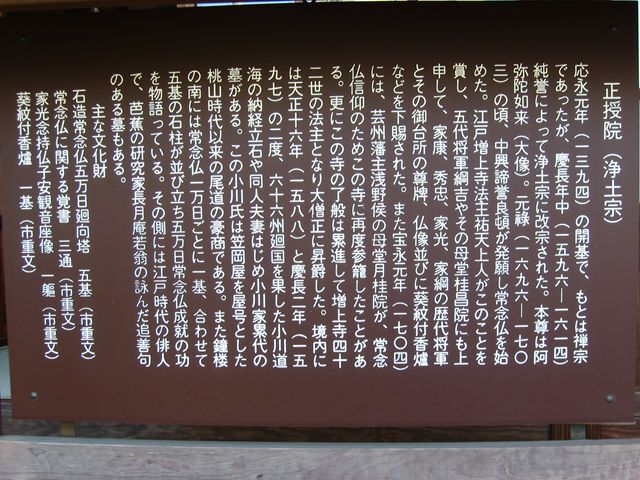 正授院（浄土宗）
応永元年（一三九四）の開基で、もとは禅宗
であったが、慶長年中（一五九六―一六一四）
純誉によって浄土宗に改宗された。本尊は阿
弥陀如来（大像）。元禄（一六九六―一七〇
三）の頃、中興諦誉良頓が発願し常念仏を始
めた。江戸増上寺法主祐天上人がこのことを
賞し、五代将軍綱吉やその母堂桂昌院にも上
申して、家康、秀忠、家光、家綱の歴代将軍
とその御台所の尊牌、仏像並びに葵紋付香爐
などを下賜された。また宝永元年（一七〇四）
には、芸州藩主浅野候の母堂月桂院が、常念
仏信仰のためこの寺に再度参籠したことがあ
る。更にこの寺の了般は累進して増上寺四十
二世の法主となり大僧正に昇爵した。境内に
は天正十六年（一五八八）と慶長二年（一五
九七）の二度、六十六州廻国を果した小川道
海の納経立石や同人夫妻はじめ小川家累代の
墓がある。この小川氏は笠岡屋を屋号とした
桃山時代以来の尾道の豪商である。また鐘楼
の南には常念仏一万日ごとに一基、合わせて
五基の石柱が並び立ち五万日常念仏成就の功
を物語っている。その側には江戸時代の俳人
で、芭蕉の研究家長月庵若翁の詠んだ追善句
のある墓もある。
主な文化財
石造常念仏五万日廻向塔　五基（市重文）
常念仏に関する覚書　三通（市重文）
家光念持仏子安観音座像　一軀（市重文）
葵紋付香爐　一基（市重文）